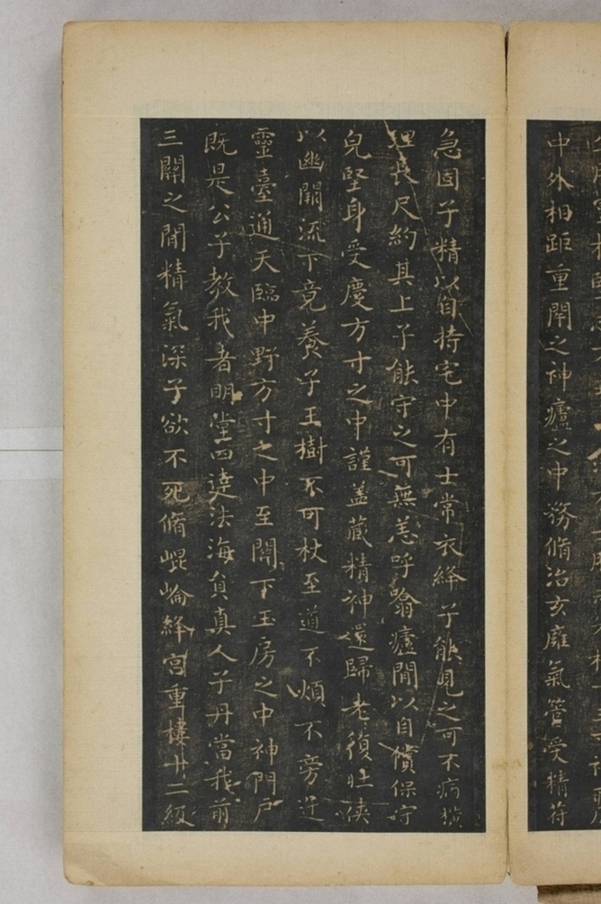 中外相距重閇之神廬之中務脩治玄癕氣管受精苻
急固子精以自持宅中有士常衣絳子能見之可不病横
理長尺約其上子能守之可無恙呼噏廬間以自償保守
皃堅身受慶方寸之中謹盖藏精神還歸老復壯俠
以幽闕流下竟養子玉樹不可杖至道不煩不旁迕
靈臺通天臨中野方寸之中至關下玉房之中神門戶
既是公子教我者明堂四達法海負真人子丹當我前
三關之閒精氣深子欲不死脩崐崘絳宮重樓十二級